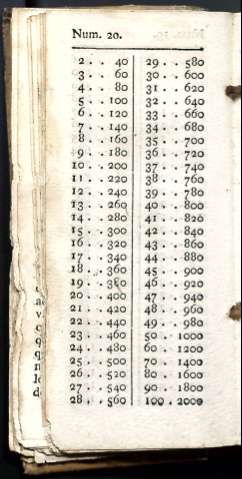 Num. 20.
2 . . 40 29 . . 580
3 . . 60 30 . . 600
4 . . 80 31 . . 620
5 . . 100 32 . . 640
6 . . 120 33 . . 660
7 . . 140 34 . . 680
8 . . 160 35 . . 700
9 . . 180 36 . . 720
10 . . 200 37 . . 740
11 . . 220 38 . . 760
12 . . 240 39 . . 780
13 . . 260 40 . . 800
14 . . 280 41 . . 820
15 . . 300 42 . . 840
16 . . 320 43 . . 860
17 . . 340 44 . . 880
18 . . 360 45 . . 900
19 . . 380 46 . . 920
20 . . 400 47 . . 940
21 . . 420 48 . . 960
22 . . 440 49 . . 980
23 . . 460 50 . . 1000
24 . . 480 60 . . 1200
25 . . 500 70 . . 1400
26 . . 520 80 . . 1600
27 . . 540 90 . . 1800
28 . . 560 100 . 2000